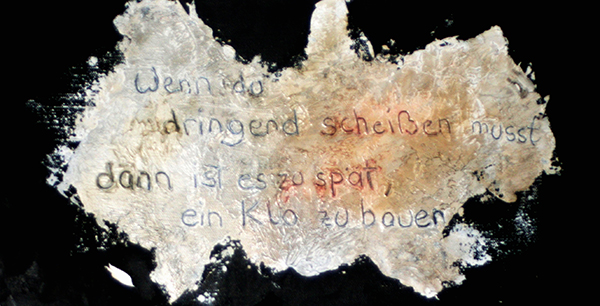 Wenn du
dringend scheißen musst
dann ist es zu spät,
ein Klo zu bauen